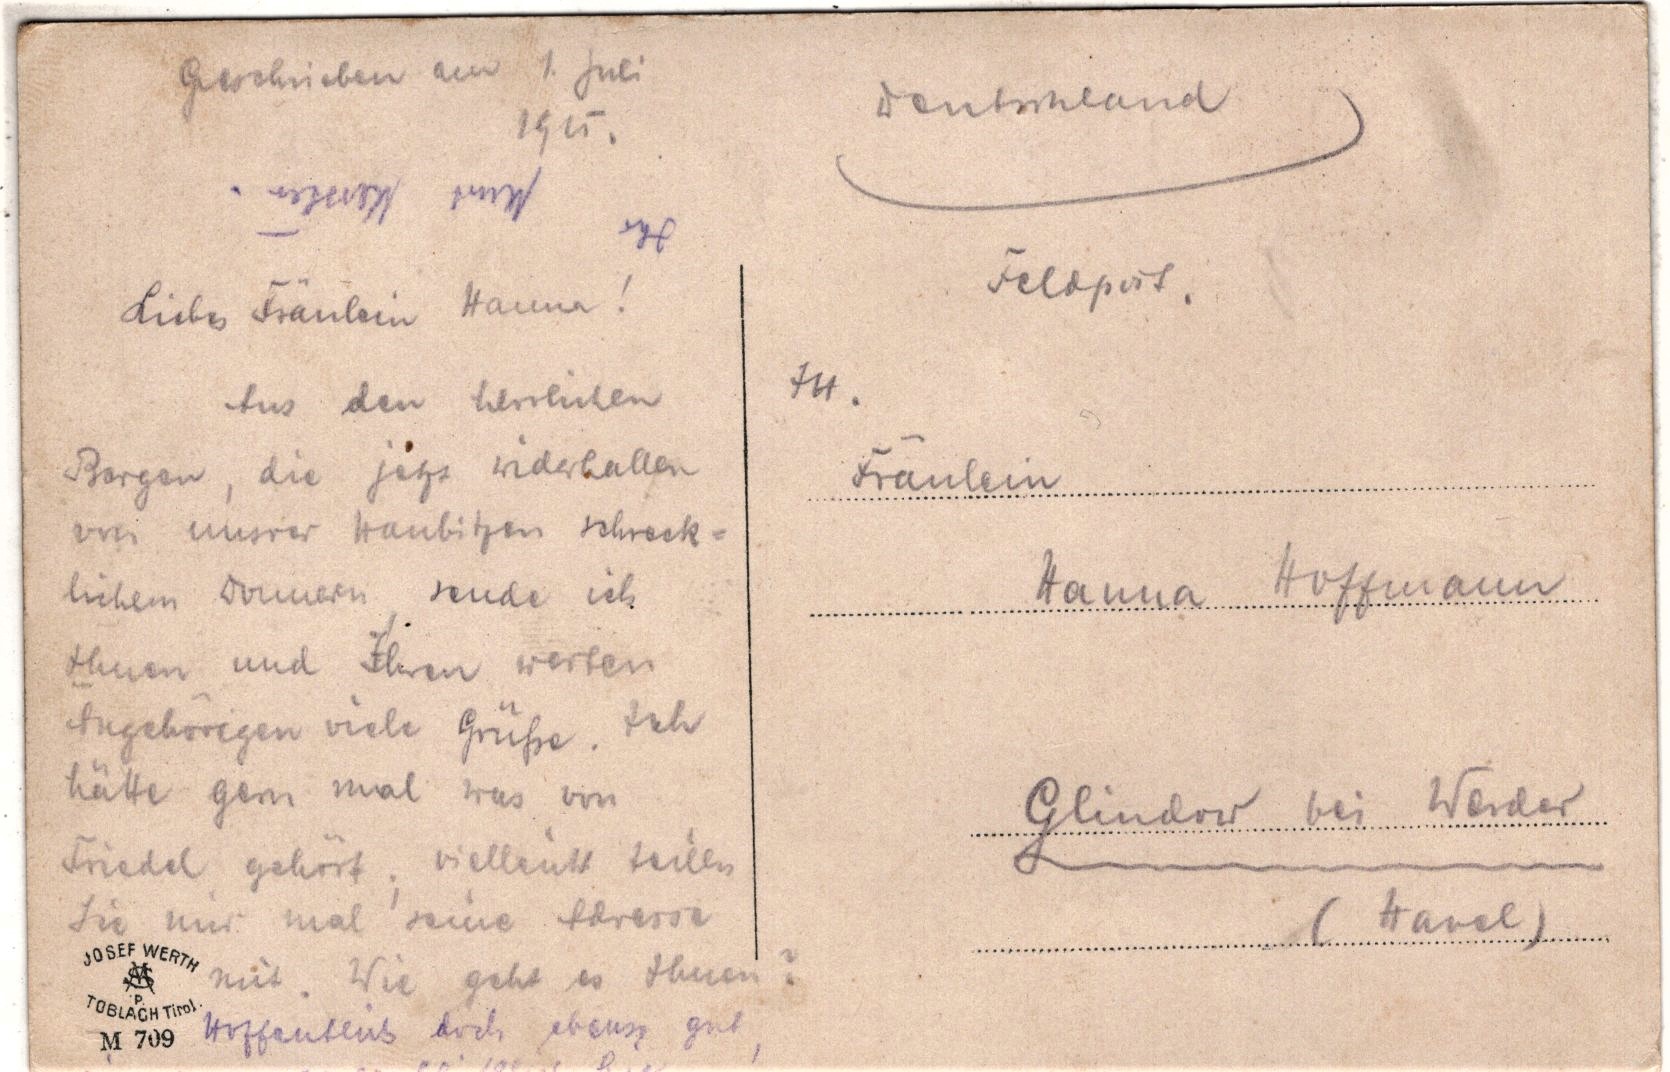 Geschrieben am 1. Juli
1915.
Liebes Fräulein Hanna!
Aus den herrlichen
Bergen, die jetzt widerhallen
von unsrer Haubitzen schreck=
lichem Donnern, sende ich
Ihnen und Ihren werten
Angehörigen viele Grüße. Ich
hätte gern mal was von
Friedel gehört, vielleicht teilen
Sie mir mal seine Adresse
mit. Wie geht es Ihnen?
Hoffentlich doch ebenso gut,
Ihr
Kurt
JOSEF WERTH
P.
TOBLACH Tirol.
M 709
Deutschland
Feldpost.
IH.
Fräulein
Hanna Hoffmann
Glindow bei Werder
(Havel)